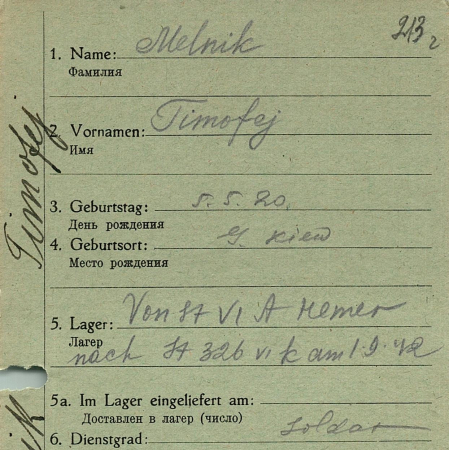 213 г
1. Name: Melnik
Фамилия
2. Vornamen: Timofej
Имя
3. Geburtstag: 5. 5. 20.
День рождения
4. Geburtsort: G. Kiew
Место рождения
5. Lager: Von St VI A Hemer
Лагер
nach St 326 VI K am 1. 9. 42
5a. Im Lager eingeliefert am:
Доставлен в лагер (число)
6. Dienstgrad: Soldat
Timofej